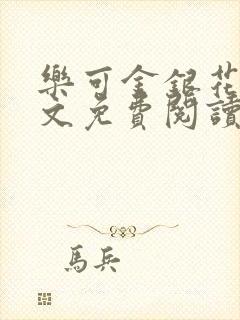 樂可金銀花
文免費閱讀
馬兵